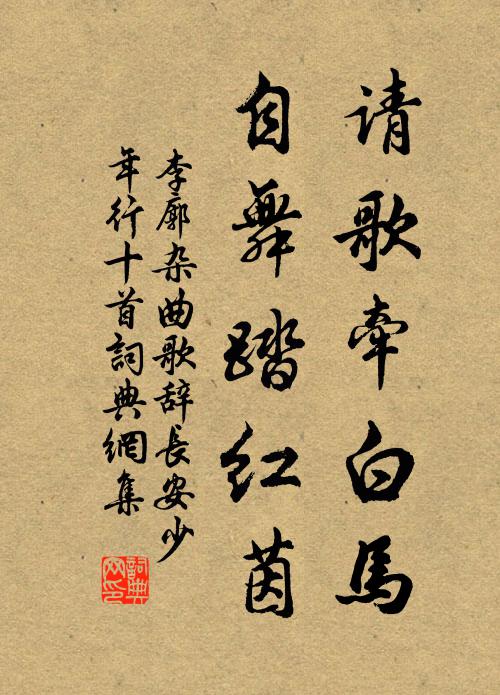 请歌牵白馬
自舞踏红茵
李廓杂曲歌辞長安少
年行十首詞典網集
詞典网印